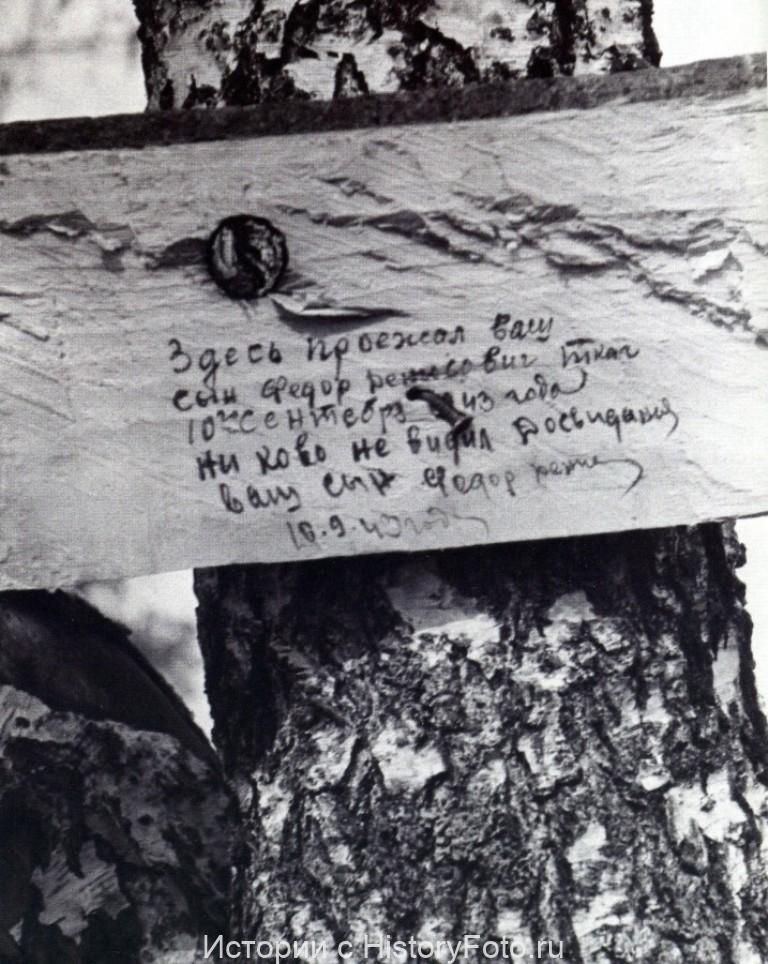 Здесь проежал ваш
сын Федор Денисович Ткач
10го сентебря 43 года
ни ково не видил Досвидания
ваш сын Федор
10.9.43 году
Истории с HistoryFoto.ru